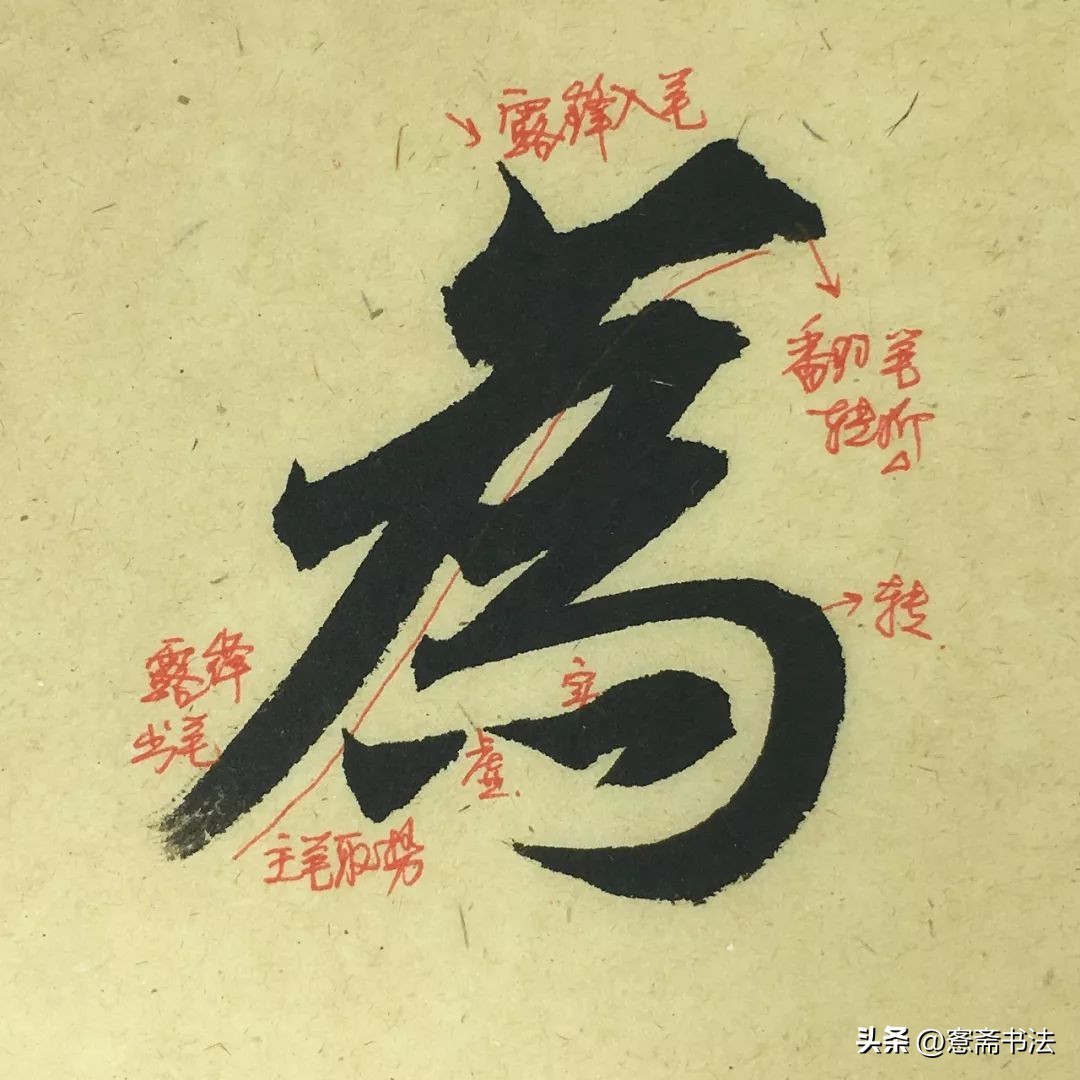 露锋入笔
為
翻笔
转折
转
露锋
出笔
实
虚
主笔取势
头条 @愙斋书法